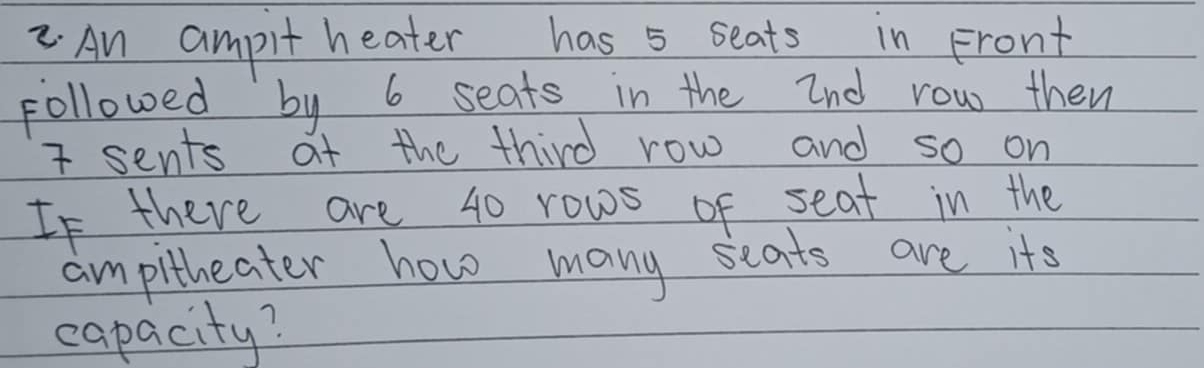 2. An ampit heater has 5 seats in Front
Followed by 6 seats in the 2nd row then
7 sents at the third row and so on
IF there are 40 rows of seat in the
ampitheater how many seats are its
capacity?